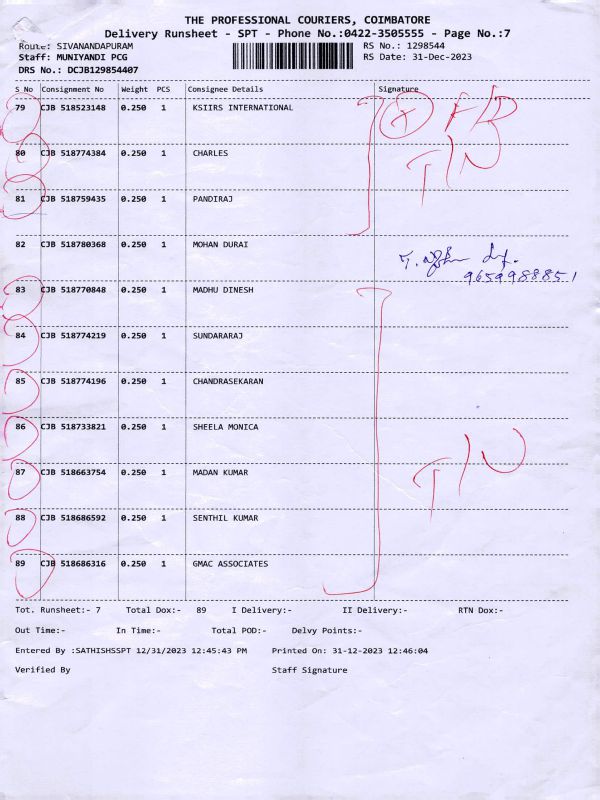 THE PROFESSIONAL COURIERS, COIMBATORE
Delivery Runsheet - SPT - Phone No.:0422-3505555 - Page No.:7
Route: SIVANANDAPURAM RS No.: 1298544
Staff: MUNIYANDI PCG RS Date: 31-Dec-2023
DRS No.: DCJB129854407
S No Consignment No Weight PCS Consignee Details Signature
79 CJB 518523148 0.250 1 KSIIRS INTERNATIONAL
80 CJB 518774384 0.250 1 CHARLES T/N
81 CJB 518759435 0.250 1 PANDIRAJ
82 CJB 518780368 0.250 1 MOHAN DURAI
9659988851
83 CJB 518770848 0.250 1 MADHU DINESH
84 CJB 518774219 0.250 1 SUNDARARAJ
85 CJB 518774196 0.250 1 CHANDRASEKARAN
86 CJB 518733821 0.250 1 SHEELA MONICA
87 CJB 518663754 0.250 1 MADAN KUMAR T/N
88 CJB 518686592 0.250 1 SENTHIL KUMAR
89 CJB 518686316 0.250 1 GMAC ASSOCIATES
Tot. Runsheet:- 7 Total Dox:- 89 I Delivery:- II Delivery:- RTN Dox:-
Out Time:- In Time:- Total POD:- Delvy Points:-
Entered By :SATHISHSSPT 12/31/2023 12:45:43 PM Printed On: 31-12-2023 12:46:04
Verified By Staff Signature